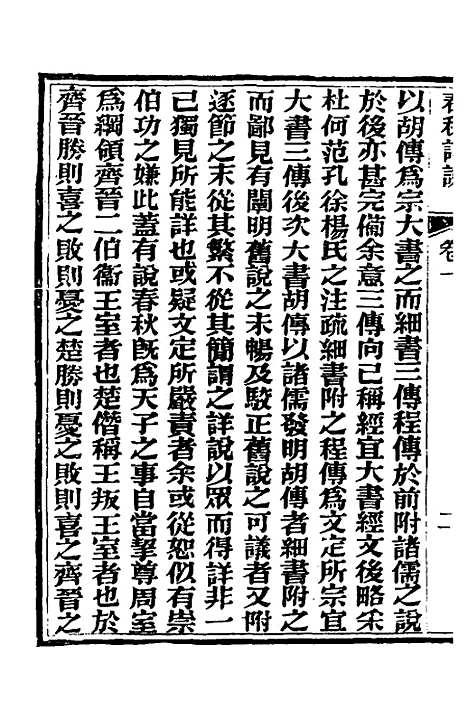 春秋詳說 卷一 二
以胡傳爲宗大書之而細書三傳程傳於前附諸儒之說
於後亦甚完備余意三傳向已稱經宜大書經文後略采
杜何范孔徐楊氏之注疏細書附之程傳爲文定所宗宜
大書三傳後次大書胡傳以諸儒發明胡傳者細書附之
而鄙見有闡明舊說之未暢及駮正舊說之可議者又附
逐節之末從其繁不從其簡謂之詳說以眾而得詳非一
已獨見所能詳也或疑文定所嚴責者余或從恕似有崇
伯功之嫌此蓋有說春秋既爲天子之事自當挈尊周室
爲綱領齊晉二伯衞王室者也楚僭稱王叛王室者也於
齊晉勝則喜之敗則憂之楚勝則憂之敗則喜之齊晉之